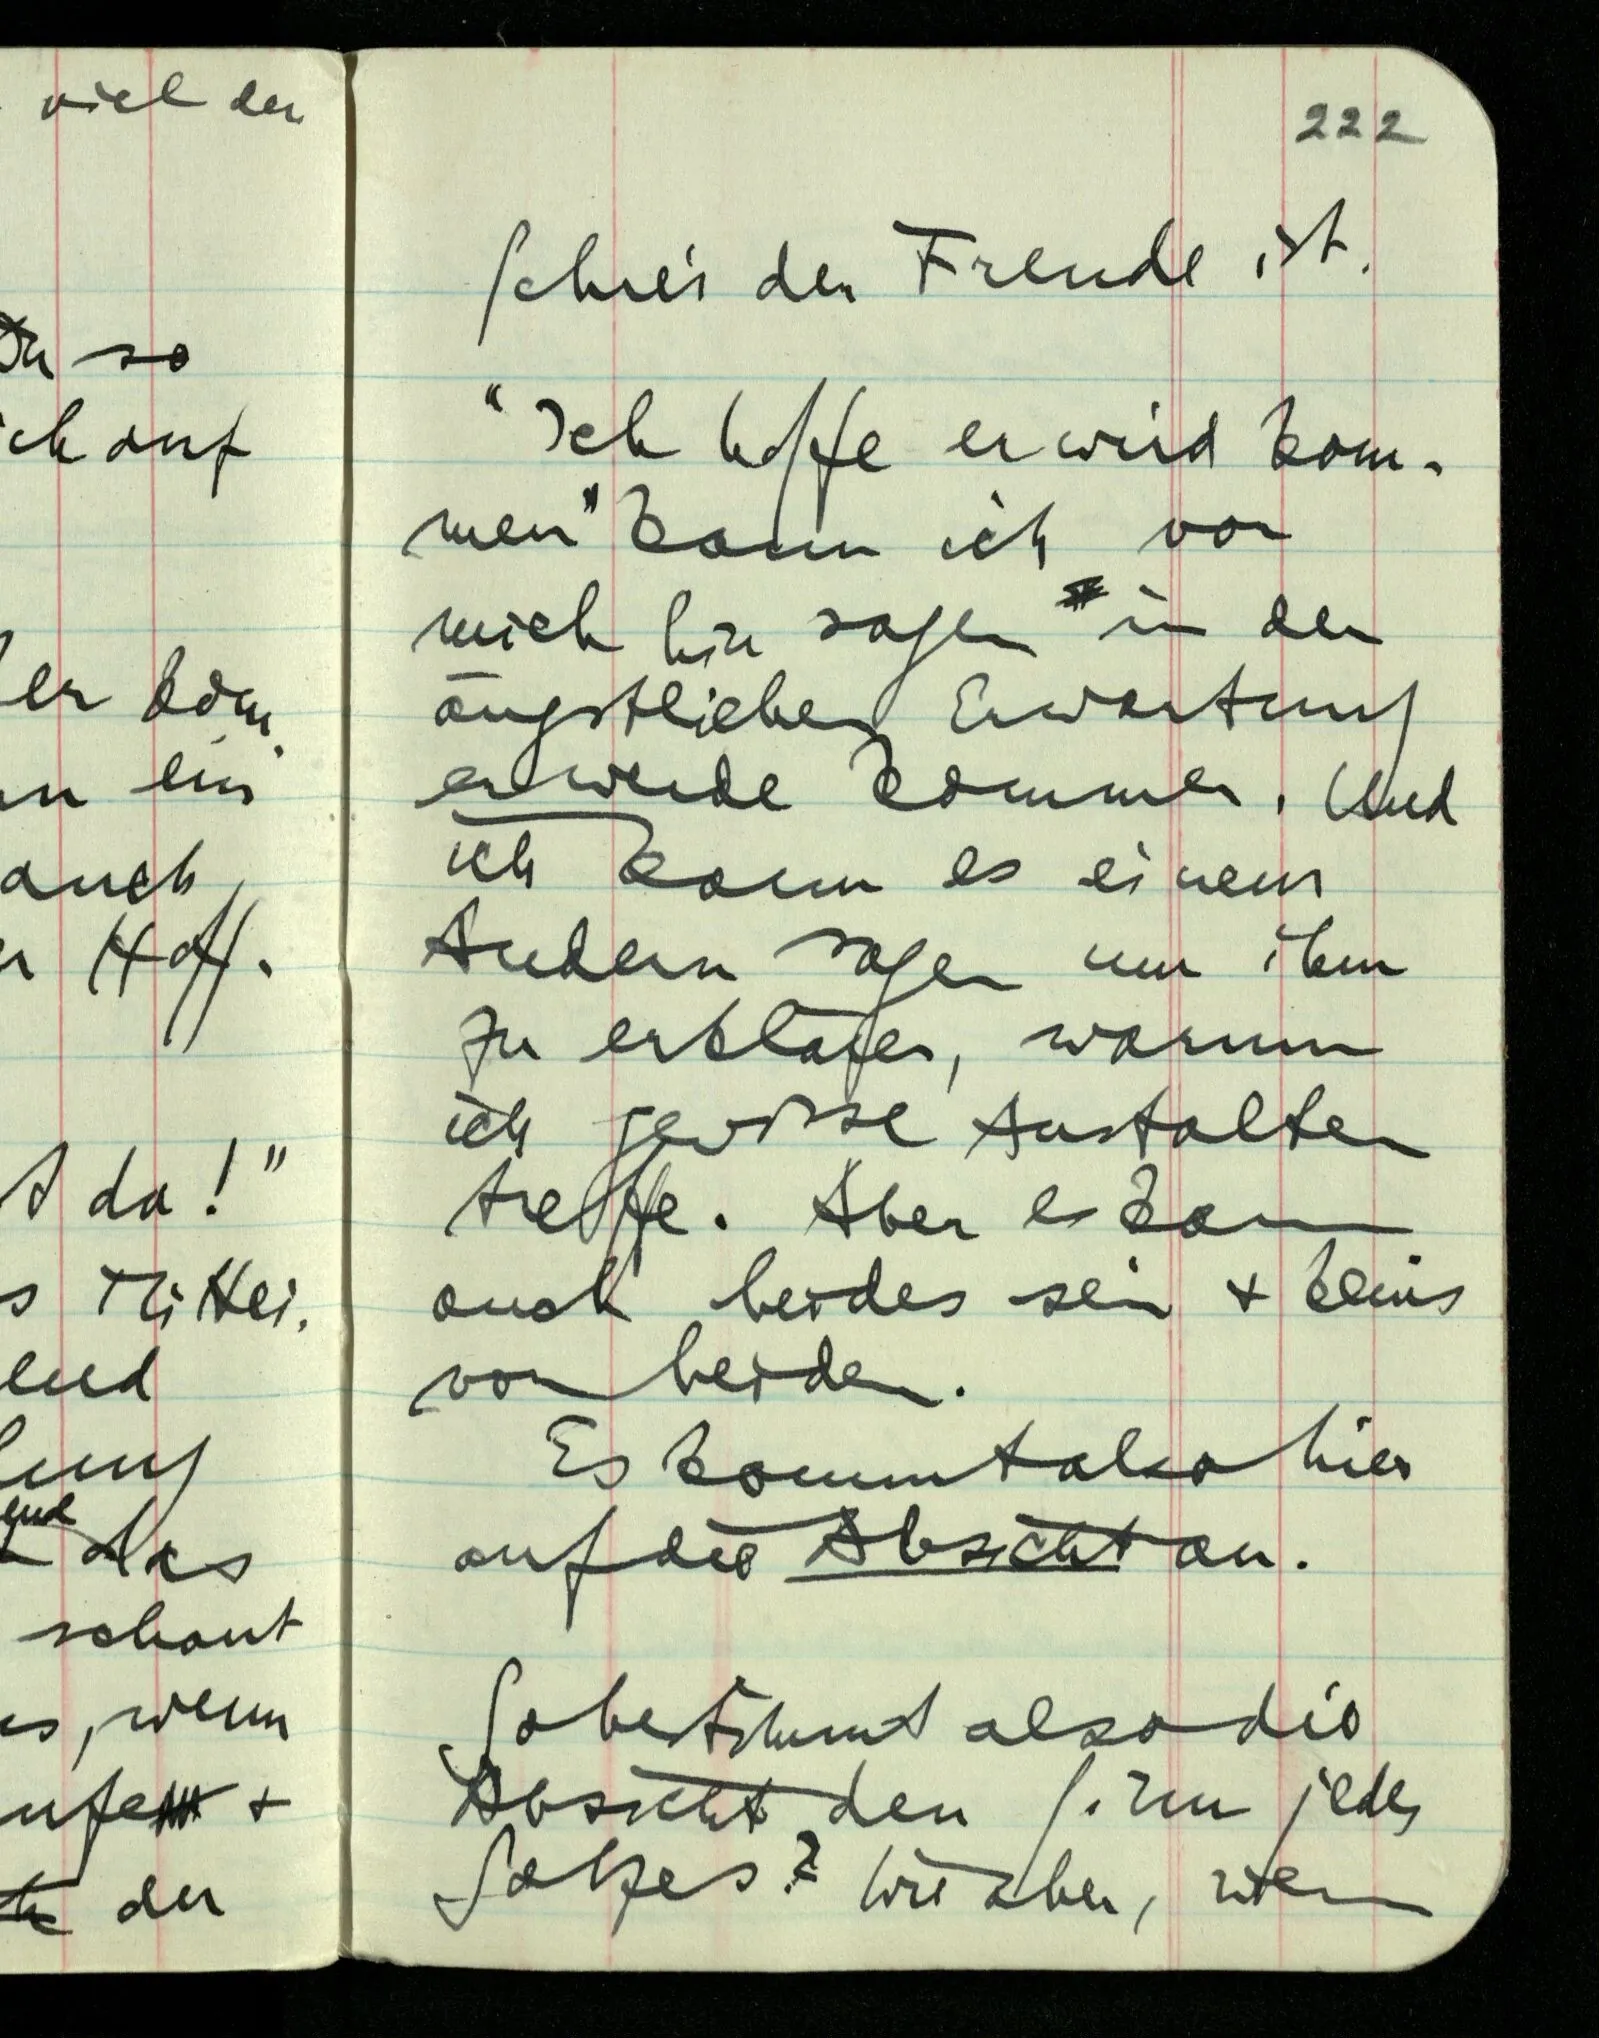 viel der
Du so
ich auf
er kom-
nn ein
auch
er Hoff-
t da!"
s Mittei-
lend
lung
end
das
schaut
es, wenn
+
der
222
Schrei der Freude ist.
"Ich hoffe er wird kom-
men" kann ich vor
mich hin sagen in der
ängstlichen Erwartung
er werde kommen. Und
ich kann es einem
Andern sagen um ihm
zu erklären, warum
ich gewisse Anstalten
treffe. Aber es kann
auch beides sein + keins
von beiden.
Es kommt also hier
auf die Absicht an.
So bestimmt also die
Absicht den Sinn jedes
Satzes? Wie aber, wenn